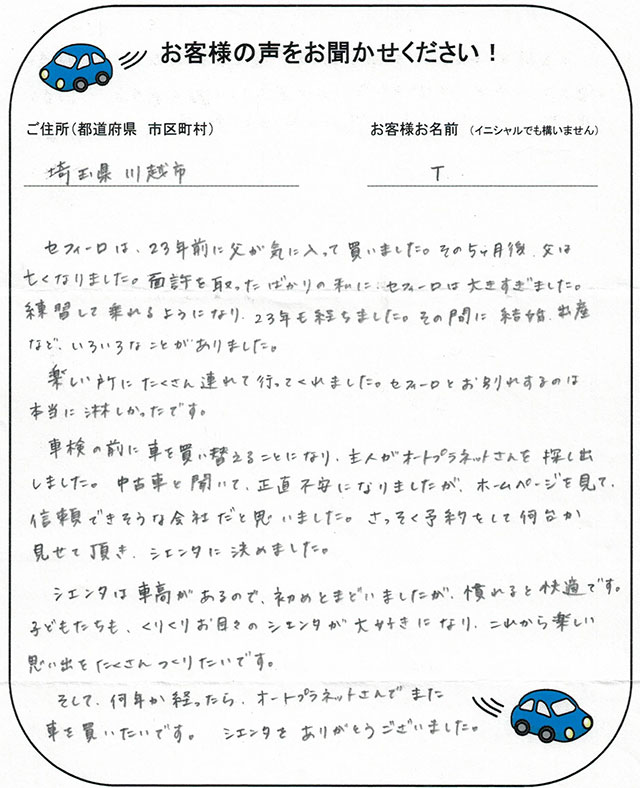 お客様の声をお聞かせください！
ご住所（都道府県　市区町村）
お客様お名前　（イニシャルでも構いません）
埼玉県川越市
T
セフィーロは、23年前に父が気に入って買いました。その5ヶ月後、父は
亡くなりました。面許を取ったばかりの私に、セフィーロは大きすぎました。
練習して乗れるようになり、23年も経ちました。その間に結婚、出産
など、いろいろなことがありました。
楽しい所にたくさん連れて行ってくれました。セフィーロとお別れするのは
本当に淋しかったです。
車検の前に車を買い替えることになり、主人がオートプラネットさんを探し出
しました。中古車と聞いて、正直不安になりましたが、ホームページを見て、
信頼できそうな会社だと思いました。さっそく予約をして何台か
見せて頂き、シエンタに決めました。
シエンタは車高があるので、初めとまどいましたが、慣れると快適です。
子どもたちも、くりくりお目々のシエンタが大好きになり、これから楽しい
思い出をたくさんつくりたいです。
そして、何年か経ったら、オートプラネットさんでまた
車を買いたいです。　シエンタをありがとうございました。